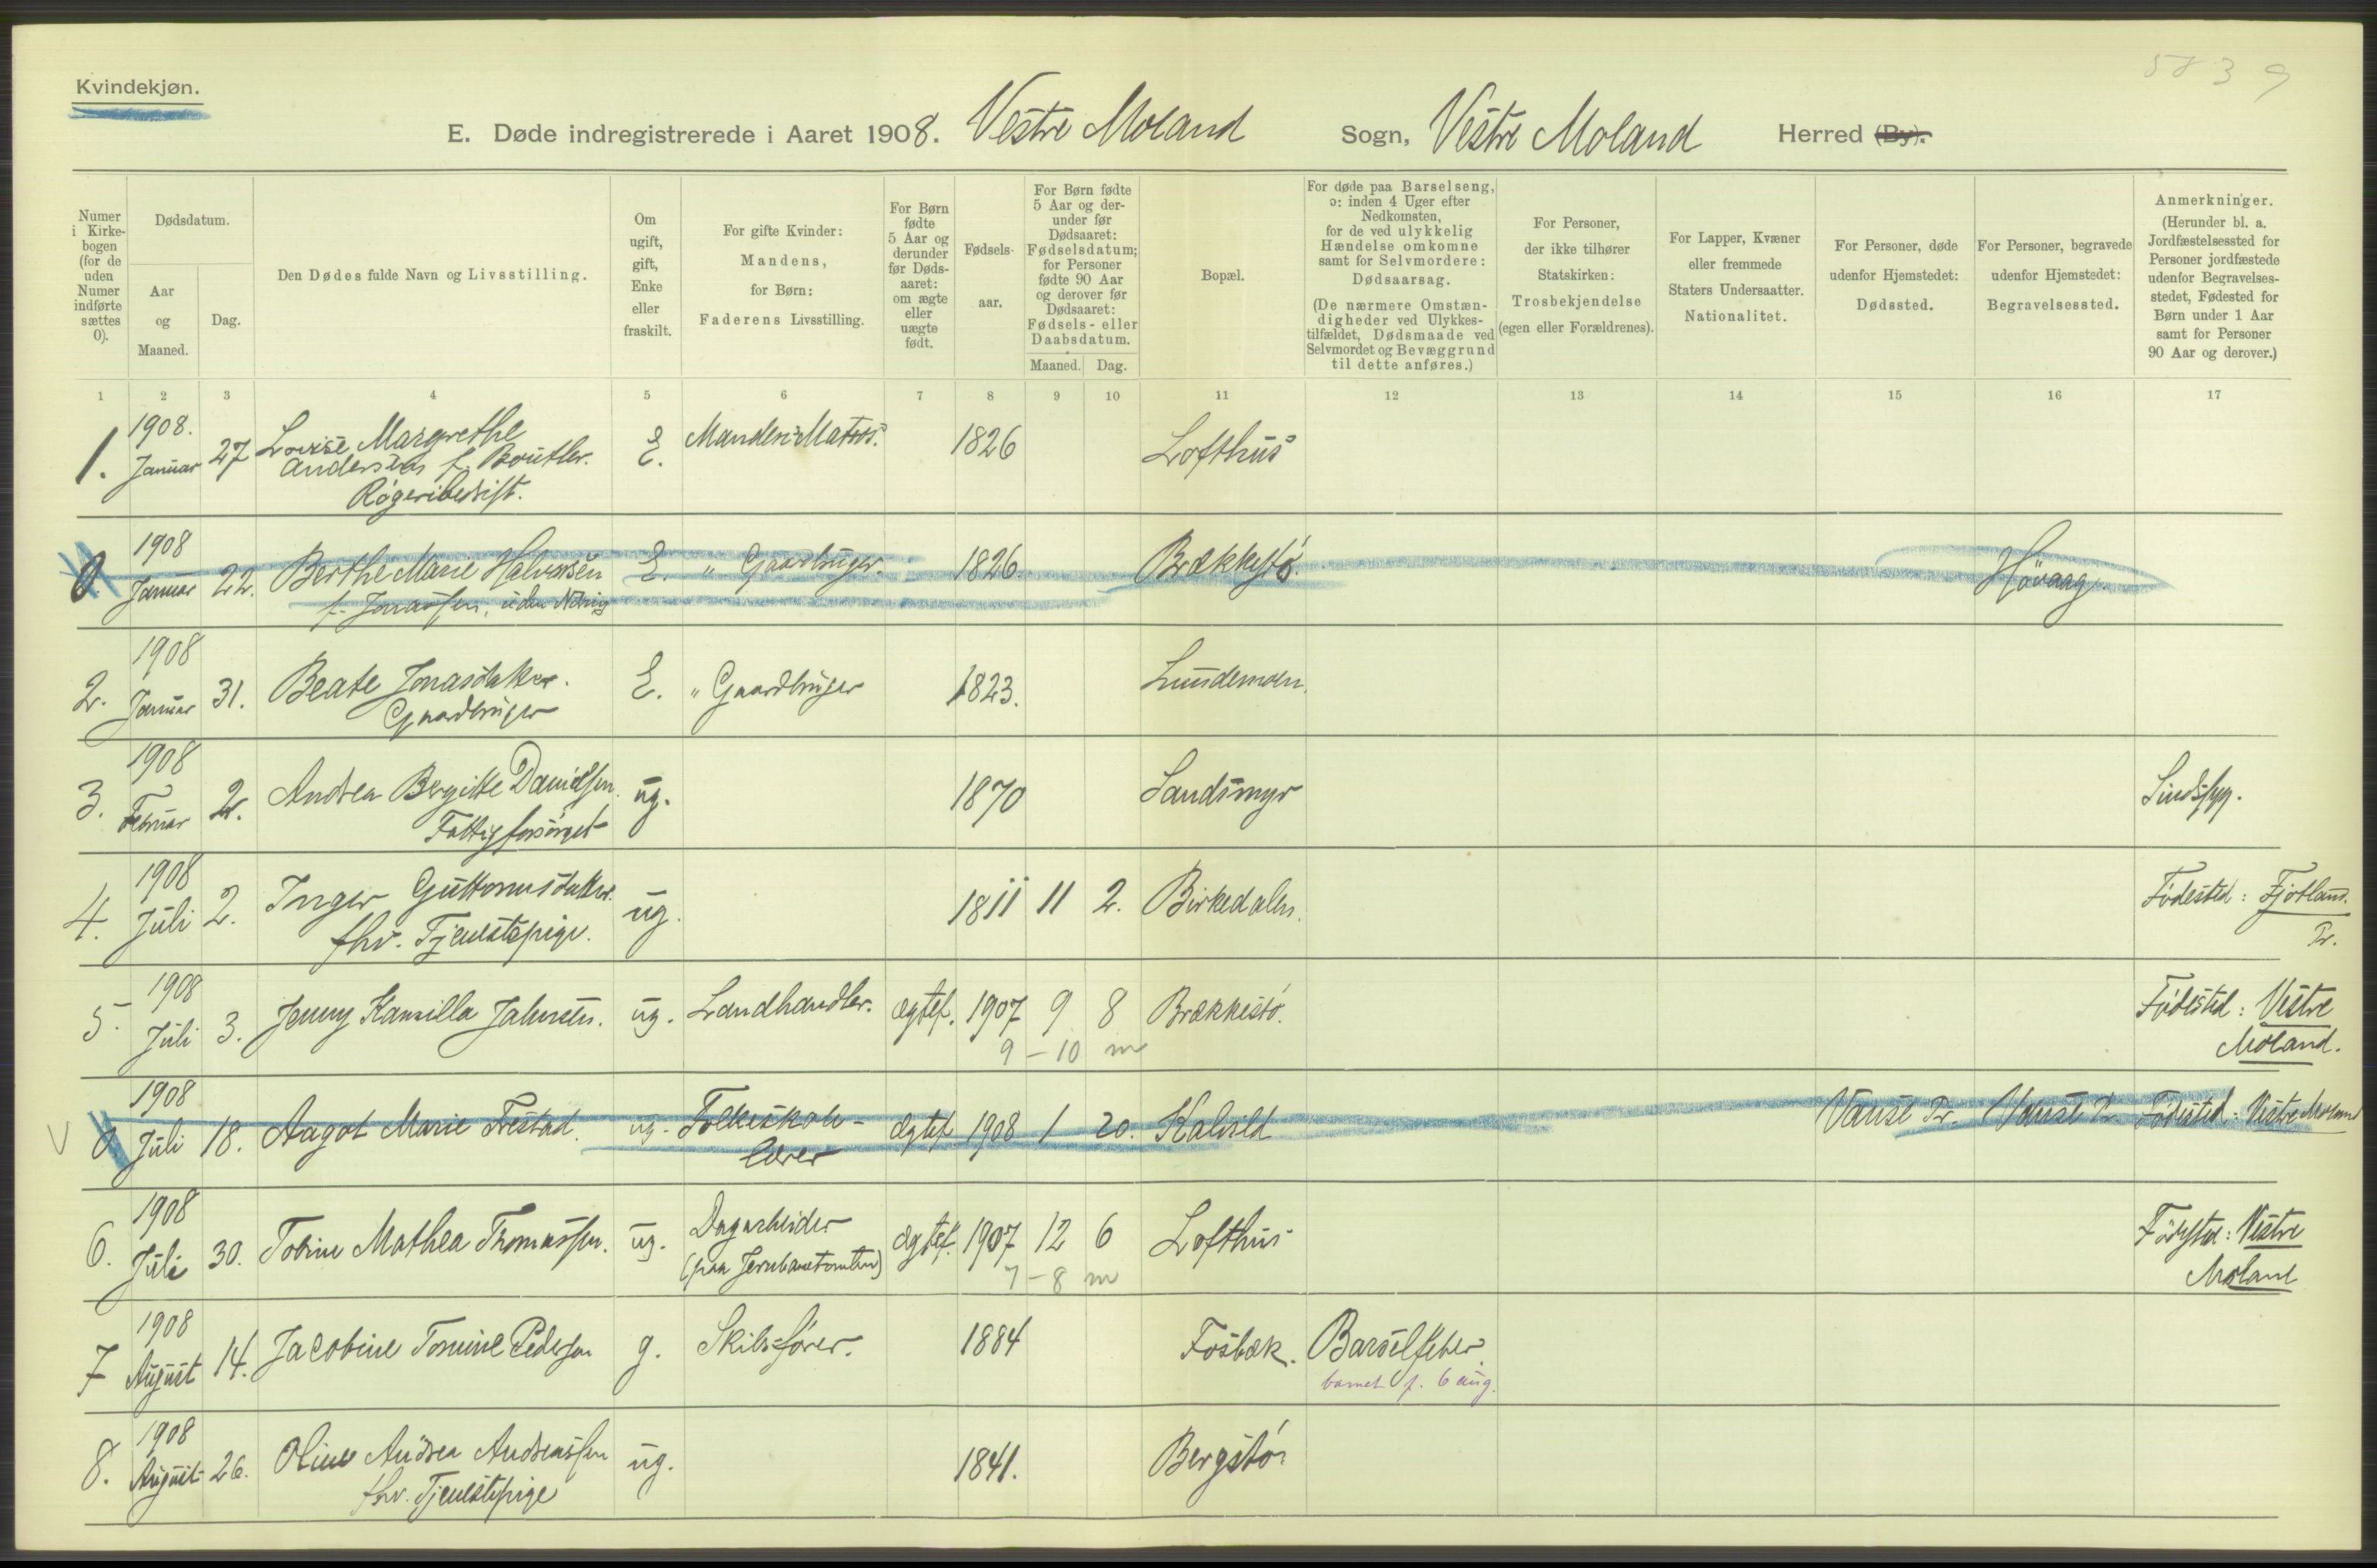 583 9
Kvindekjøn.
E. Døde indregistrerede i Aaret 1908. Vestre Moland Sogn, Vestre Moland Herred (By).
Numer i Kirkebogen (for de uden Numer indførte sættes 0).
Dødsdatum.
Aar og Maaned.
Dag.
Den Dødes fulde Navn og Livsstilling.
Om ugift, gift, Enke eller fraskilt.
For gifte Kvinder: Mandens, for Børn: Faderens Livsstilling.
For Børn fødte 5 Aar og derunder før Dødsaaret: om ægte eller uægte født.
Fødselsaar.
For Børn fødte 5 Aar og derunder før Dødsaaret: Fødselsdatum; for Personer fødte 90 Aar og derover før Dødsaaret: Fødsels- eller Daabsdatum.
Maaned. Dag.
Bopæl.
For døde paa Barselseng, ɔ: inden 4 Uger efter Nedkomsten, for de ved ulykkelig Hændelse omkomne samt for Selvmordere: Dødsaarsag.
(De nærmere Omstændigheder ved Ulykkestilfældet, Dødsmaade ved Selvmordet og Bevæggrund til dette anføres.)
For Personer, der ikke tilhører Statskirken: Trosbekjendelse (egen eller Forældrenes).
For Lapper, Kvæner eller fremmede Staters Undersaatter. Nationalitet.
For Personer, døde udenfor Hjemstedet: Dødssted.
For Personer, begravede udenfor Hjemstedet: Begravelsessted.
Anmerkninger.
(Herunder bl. a. Jordfæstelsessted for Personer jordfæstede udenfor Begravelsesstedet, Fødested for Børn under 1 Aar samt for Personer 90 Aar og derover.)
1 2 3 4 5 6 7 8 9 10 11 12 13 14 15 16 17
1. 1908. Januar 27 Lovise Margrethe E. Mandens: Matros. 1826 Lofthus
Andersen f. Boutler.
Røgeribedrift.
0 1908 Januar 22. Berthe Marie Halvorsen E. " Gaardbruger. 1826. Brækkestø Høvaag
f. Jonassen, uden Næring
2. 1908 Januar 31. Beate Jonasdatter. E. " Gaardbruger 1823. Lundemoen.
Gaardbruger
3. 1908 Februar 2. Andrea Bergitte Danielsen. ug. 1870 Sandsmyr Sindssyg.
Fattigforsörget
4. 1908 Juli 2. Inger Guttormsdatter. ug. 1811 11 2. Birkedalen. Födested: Fjotland
fhv. Tjenestepige. Pr.
5. 1908 Juli 3. Jenny Kamilla Jahnsen. ug. Landhandler. ægtef. 1907 9 8 Brækkestø. Födested: Vestre
9 - 10 m Moland.
V 0 1908 Juli 18. Aagot Marie Frestad. ug. Folkeskole- ægtef. 1908 1 20. Kalvild Vanse Pr. Vanse Pr. Födested: Vestre Moland
lærer
6. 1908 Juli 30. Tobine Mathea Thomassen. ug. Dagarbeider ægtef. 1907 12 6 Lofthus Födested: Vestre
(paa Jernbanetomten) 7 - 8 m Moland
7 1908 August 14. Jacobine Tomine Pedersen g. Skibsfører. 1884 Fosbæk. Barselfeber.
barnet f. 6 aug.
8. 1908 August 26. Oline Andrea Andreassen ug. 1841. Bergstø
fhv. Tjenestepige